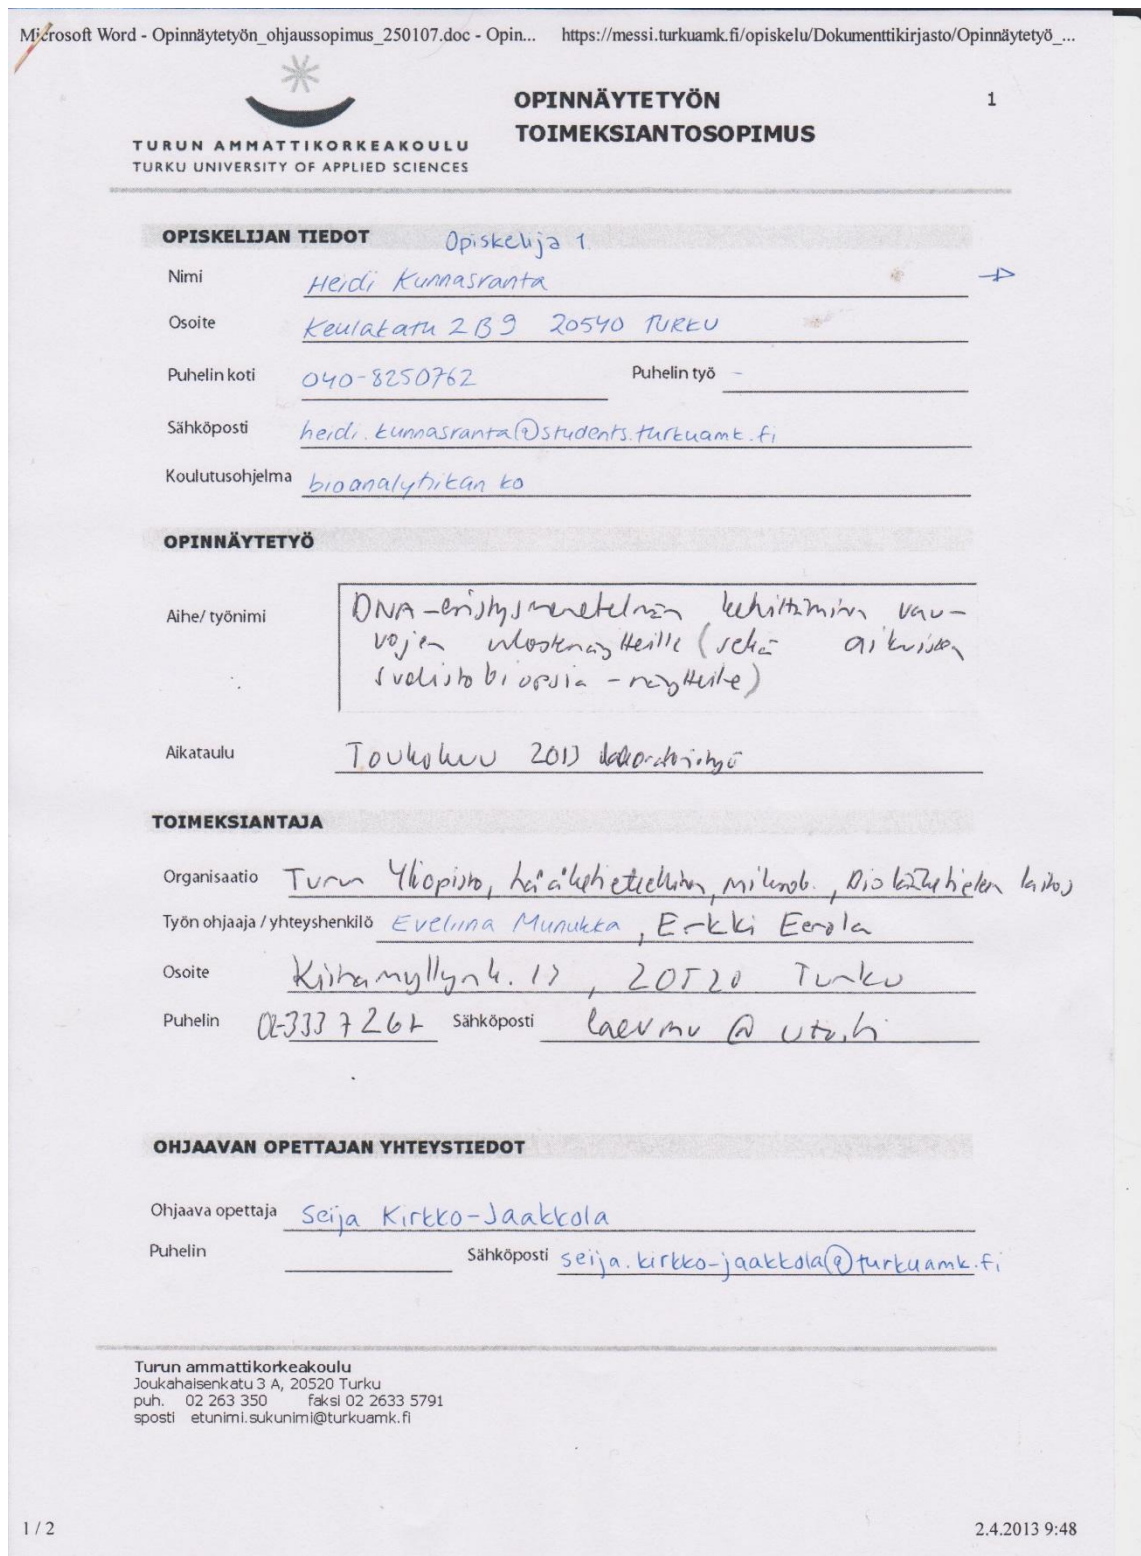 Microsoft Word - Opinnäytetyön_ohjaussopimus_250107.doc - Opin... https://messi.turkuamk.fi/opiskelu/Dokumenttikirjasto/Opinnäytetyö_...
OPINNÄYTETYÖN 1
TOIMEKSIANTOSOPIMUS
TURUN AMMATTIKORKEAKOULU
TURKU UNIVERSITY OF APPLIED SCIENCES
OPISKELIJAN TIEDOT Opiskelija 1.
Nimi Heidi Kunnasranta
Osoite Keulakatu 2 B 9 20540 TURKU
Puhelin koti 040-8250762 Puhelin työ -
Sähköposti heidi.kunnasranta@students.turkuamk.fi
Koulutusohjelma bioanalytiikan ko
OPINNÄYTETYÖ
Aihe/ työnimi DNA-eristysmenetelmän kehittäminen vau-
vojen ulostenäytteille (sekä aikuisten
suolistobiopsia-näytteille)
Aikataulu Toukokuu 2013 laboratoriotyö
TOIMEKSIANTAJA
Organisaatio Turun Yliopisto, lääketieteellinen mikrob.,
Työn ohjaaja / yhteyshenkilö Eveliina Munukka, Erkki Eerola
Osoite Kiinamyllynk. 13, 20520 Turku
Puhelin 02-333 7 Sähköposti laevmu @ utu.fi
OHJAAVAN OPETTAJAN YHTEYSTIEDOT
Ohjaava opettaja Seija Kirkko-Jaakkola
Puhelin Sähköposti seija.kirkko-jaakkola@turkuamk.fi
Turun ammattikorkeakoulu
Joukahaisenkatu 3 A, 20520 Turku
puh. 02 263 350 faksi 02 2633 5791
sposti etunimi.sukunimi@turkuamk.fi
1 / 2 2.4.2013 9:48